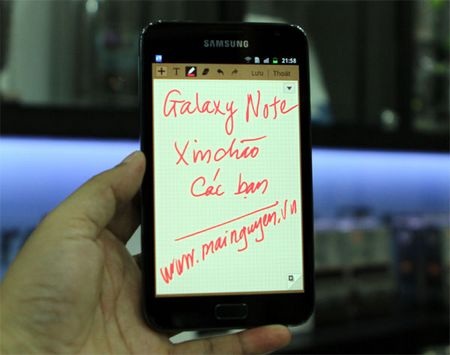 SAMSUNG
21:58
T Lưu Thoát
Galaxy Note
Xin chào
Các bạn
www.mainguyen.vn